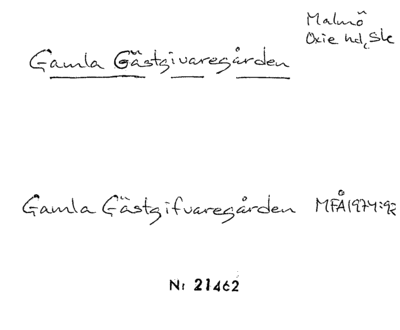 Malmö
Oxie hd, Sk
Gamla Gästgivaregården
Gamla Gästgifvaregården MFÅ 1974:92
Nr 21462